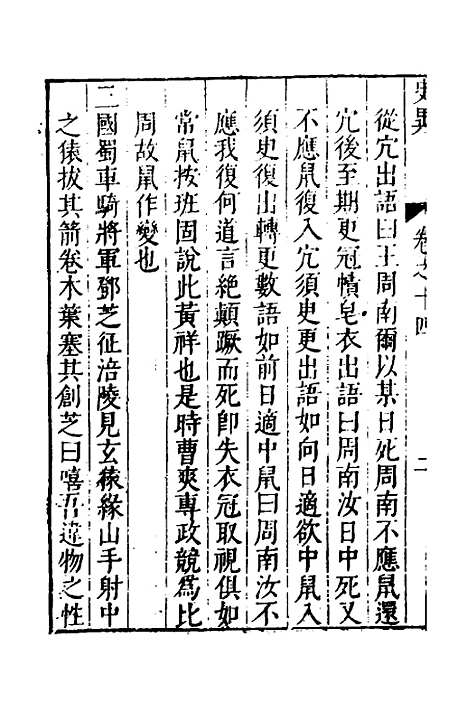 史異
卷之十四
二
從穴出語曰王周南爾以某日死周南不應鼠還
穴後至期更冠幘皂衣出語曰周南汝日中死又
不應鼠復入穴須㬰更出語如向日適欲中鼠入
須㬰復出轉更數語如前日適中鼠曰周南汝不
應我復何道言絶顛蹶而死卽失衣冠取視俱如
常鼠按班固說此黃祥也是時曹爽專政競爲比
周故鼠作變也
國蜀車騎將軍鄧芝征涪陵見玄猿緣山手射中
之猿拔其箭卷木葉塞其創芝曰嘻吾違物之性